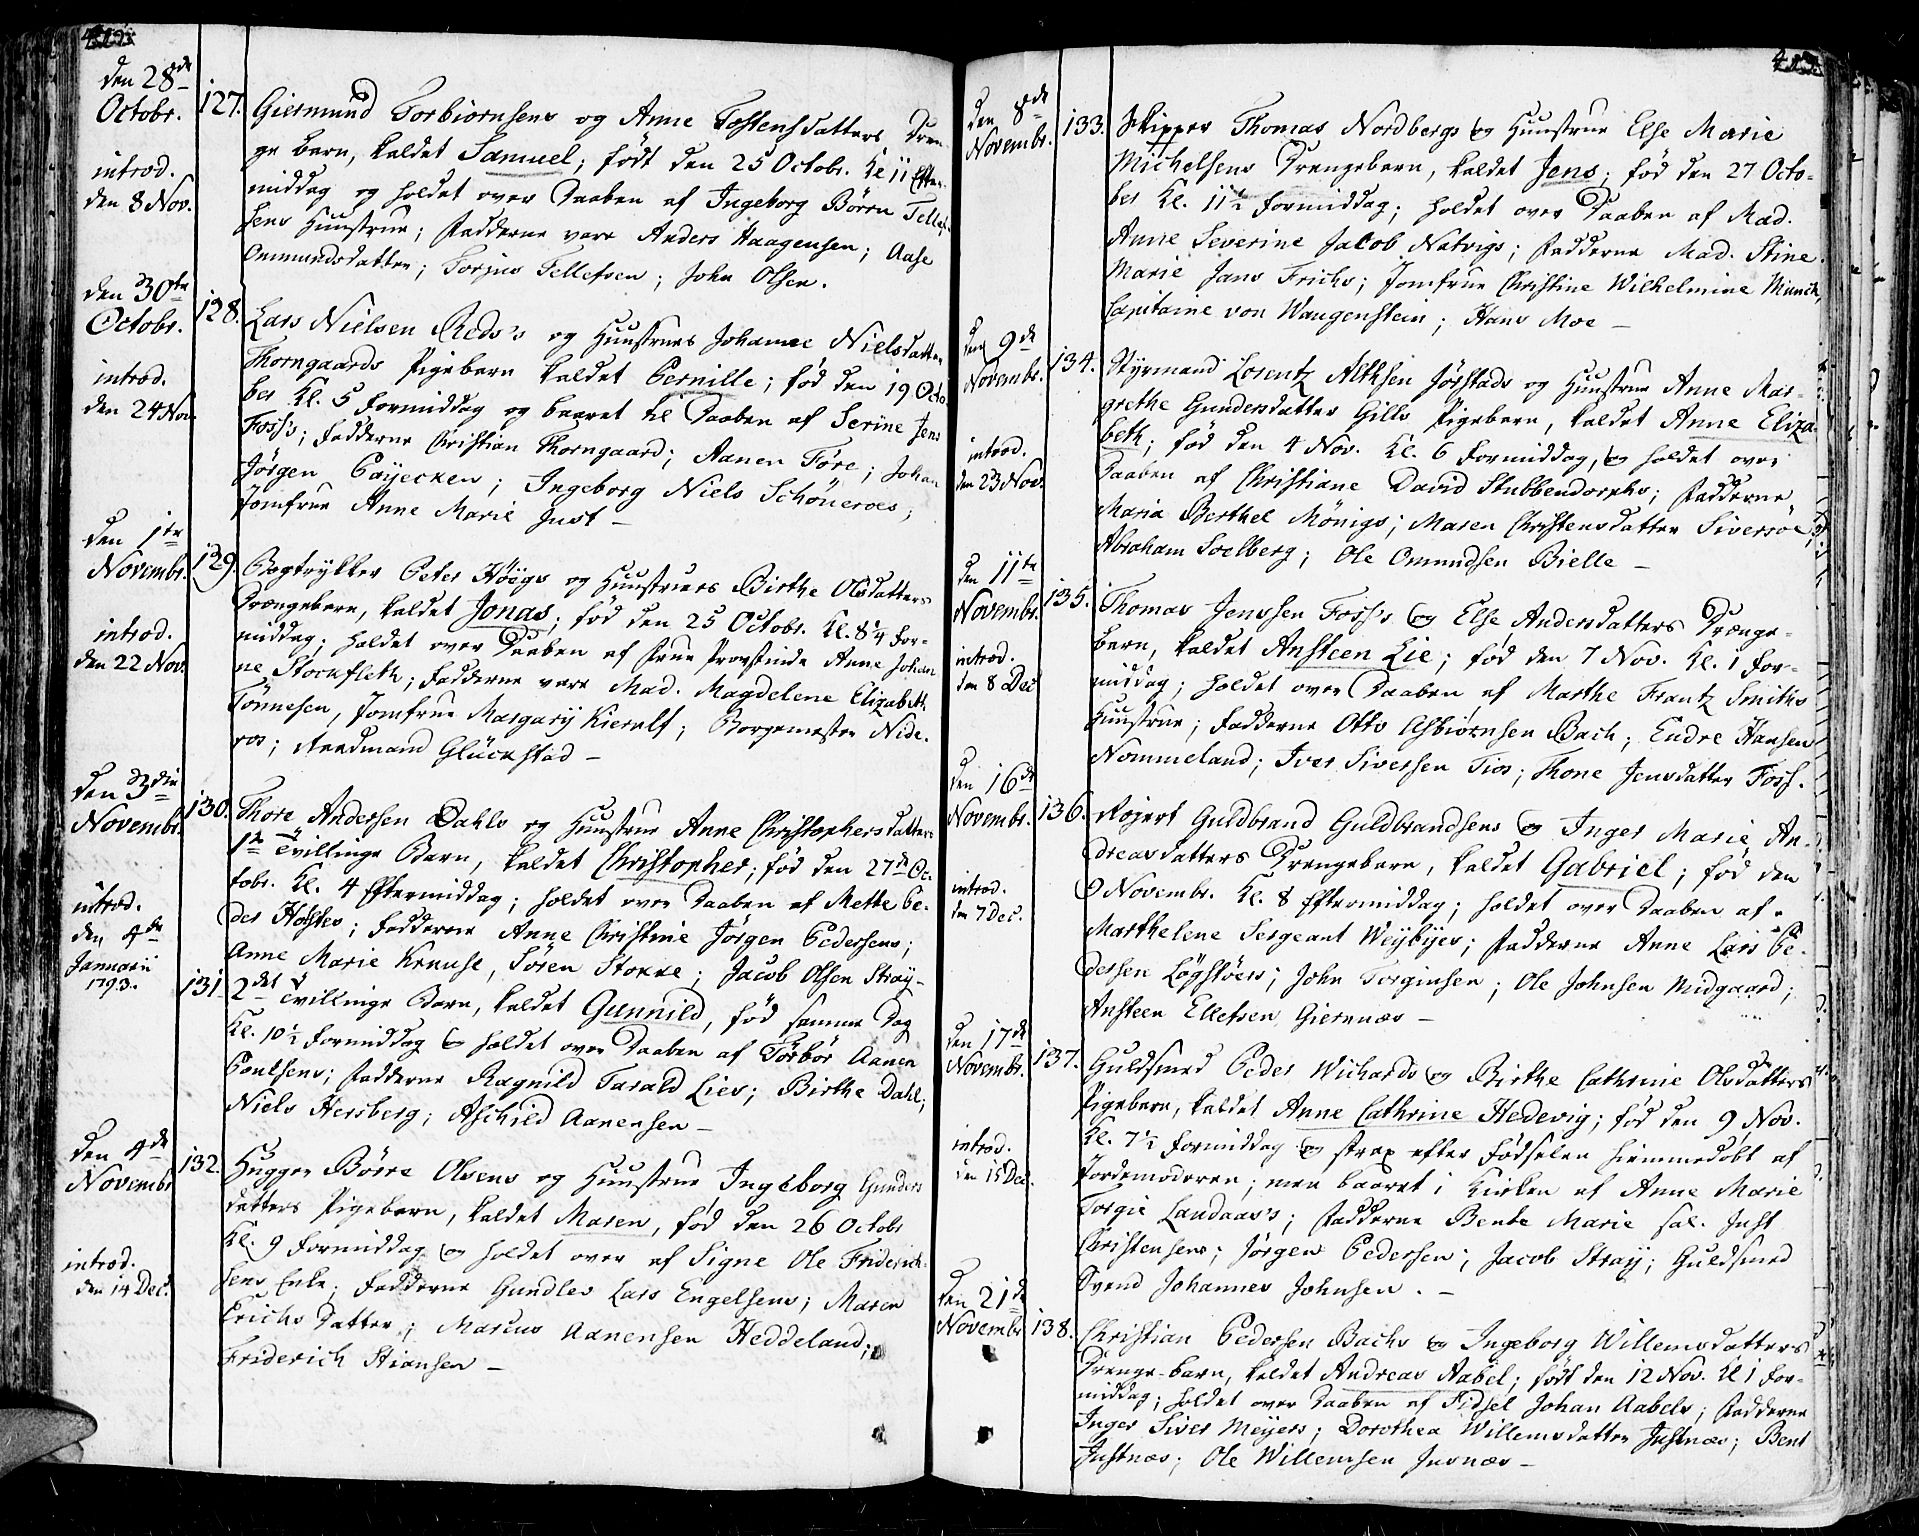 den 28de
Octobr.
introd.
den 8 Nov.
127. Giermund Torbiørnsens og Anne Tostensdatters Dren-
ge barn, kaldet Samuel; født den 25 Octobr. Kl 11 Efter-
middag og holdet over Daaben af Ingeborg Börre Tellef-
sens Huustrue; Fadderne vare Anders Haagensen; Aase
Ommundsdatter; Torjus Tellefsen; John Olsen.
den 30te
Octobr.
introd.
den 24 Nov.
128. Lars Nielsen Reds's og Huustrues Johanne Nielsdatter
Thorngaards Pigebarn kaldet Pernille; fød den 19 Octo-
ber Kl. 5 Formiddag og baaret til Daaben af Serine Jens
Foss's; Fadderne Christian Thorngaard; Aanen Före; Johan
Jørgen Payecken; Ingeborg Niels Schöneroes;
Jomfrue Anne Marie Just —
den 1te
Novembr.
introd.
den 22 Nov.
129. Bogtrykker Peter Höegs og Huustrues Birthe Olsdatters
Drengebarn, kaldet Jonas; fød den 25 Octobr. Kl. 8 1/4 For-
middag; holdet over Daaben af Frue Provstinde Anne Johan
ne Stockfleth; Fadderne vare Mad. Magdelene Elizabeth
Tönnesen, Jomfrue Margary Kierulf; Borgemester Nide-
ros; Aredmand Glückstad —
den 3die
Novembr.
introd.
den 4de
Januarii
1793.
130. Thore Andersen Dahls og Huustrue Anne Christophersdatters
1te Tvillinge Barn, kaldet Christopher; fød den 27de Oc-
tobr. Kl. 4 Eftermiddag; holdet over Daaben af Mette Pe-
der Holstes; Fadderne Anne Christine Jørgen Pedersens;
Anne Marie Krause, Sören Stokke; Jacob Olsen Stray —
131. 2det Tvillinge Barn, kaldet Gunnild, fød samme Dag
Kl. 10 1/2 Formiddag og holdet over Daaben af Törbör Aanen
Poulsens; Fadderne Ragnild Tarald Lies; Birthe Dahl;
Niels Hersberg; Aschild Aanensen —
den 4de
Novembr.
introd.
den 14 Dec.
132. Hugger Börre Olsens og Huustrue Ingeborg Gunders
datters Pigebarn, kaldet Maren, fød den 26 Octobr.
Kl. 9 Formiddag og holdet over af Signe Ole Friderich-
sens Enke; Fadderne Gundles Lars Engelsens; Maren
Erichs Datter; Marcus Aanensen Heddeland;
Friderich Stiansen —
den 8de
Novembr.
133. Skipper Thomas Nordbergs og Huustrue Else Marie
Michelsens Drengebarn, kaldet Jens; fød den 27 Octo-
ber Kl. 11 1/2 Formiddag; holdet over Daaben af Mad.
Anne Severine Jacob Natvigs; Fadderne Mad. Stine
Marie Jans Frichs; Jomfrue Christine Wilhelmine Munch,
Capitaine von Wangenstein; Hans Moe —
den 9de
Novembr.
introd.
den 23 Nov.
134. Styrmand Lorentz Altesen Jørstads og Huustrue Anne Mar-
grethe Gundersdatter Gills Pigebarn, kaldet Anne Eliza-
beth; fød den 4 Nov. Kl. 6 Formiddag, og holdet over
Daaben af Christiane David Stubbendorphs; Fadderne
Maria Berthel Mönigs; Maren Christensdatter Siversöe;
Abraham Soelberg; Ole Omundsen Bielle —
den 11te
Novembr.
introd.
den 8 Dec
135. Thomas Jenssen Foss's og Else Andersdatters Drenge-
barn, kaldet Ansteen Lie; fød den 7 Nov. Kl. 1 For-
middag; holdet over Daaben af Marthe Frantz Smiths
Huustrue; Fadderne Otto Asbiørnsen Bach; Endre Hansen
Nommeland; Iver Siversen Tios; Thone Jensdatter Foss.
den 16de
Novembr.
introd.
den 7 Dec.
136. Rojert Guldbrand Guldbrandsens og Inger Marie An-
dreasdatters Drengebarn, kaldet Gabriel; fød den
9 Novembr. Kl. 8 Eftermiddag; holdet over Daaben af
Marthelene Sergeant Weybyes; Fadderne Anne Lars Pe-
dersen Løgstörs; John Torginsen; Ole Johnsen Midgaard;
Ansteen Ellefsen Giernæs —
den 17de
Novembr.
introd.
den 15 Dec.
137. Guldsmed Peder Wichards og Birthe Cathrine Olsdatters
Pigebarn, kaldet Anne Cathrine Hedevig; fød den 9 Nov.
Kl. 7 1/2 Formiddag og strax efter Fødselen hiemmedøbt af
Jordemoderen; men baaret i Kirken af Anne Marie
Torgie Landaas's; Fadderne Bente Marie sal. Just
Christensens; Jørgen Pedersen; Jacob Stray; Guldsmed
Svend Johannes Johnsen. —
den 21de
Novembr
138. Christian Pedersen Bachs og Ingeborg Willemsdatters
Drenge-barn, kaldet Andreas Aabel; født den 12 Nov. Kl 1 For-
middag; holdet over Daaben af Fidsel Johan Aabels; Fadderne
Inger Siver Meyers; Dorothea Willemsdatter Justnæs; Bent
Justnæs; Ole Willemsen Jusnæs —